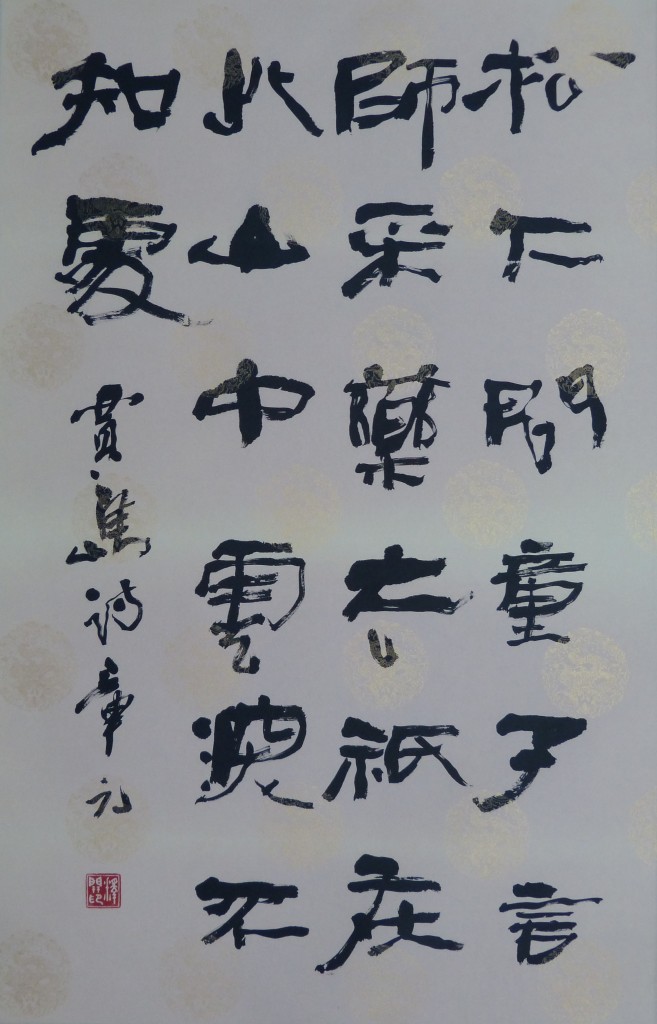 松下問童子言
師采藥去祇在
此山中雲深不
知處
賈島詩章